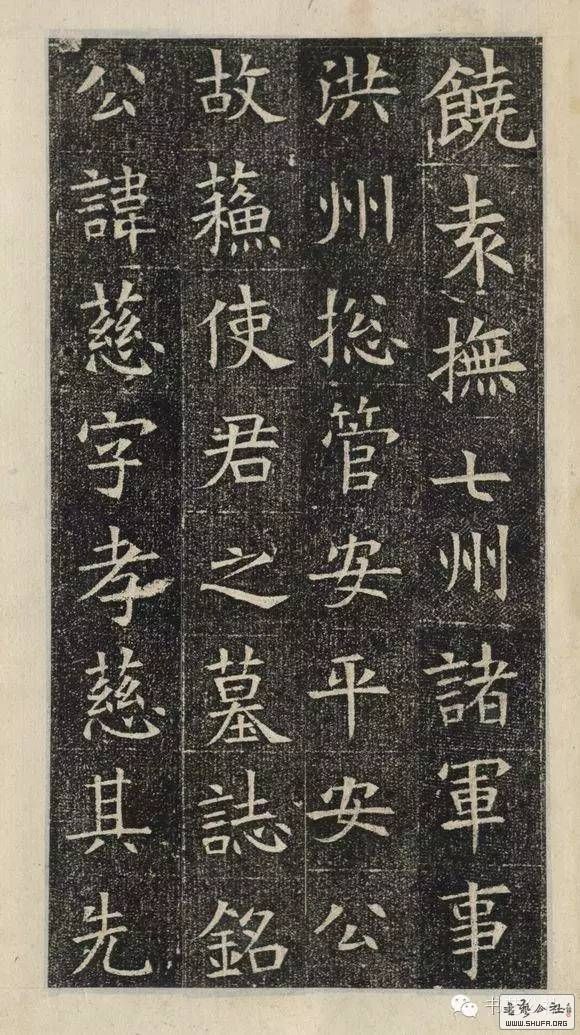 饒袁撫七州諸軍事
洪州揔管安平安公
故蘓使君之墓誌銘
公諱慈字孝慈其先
书
WWW.SHUFA.ORG